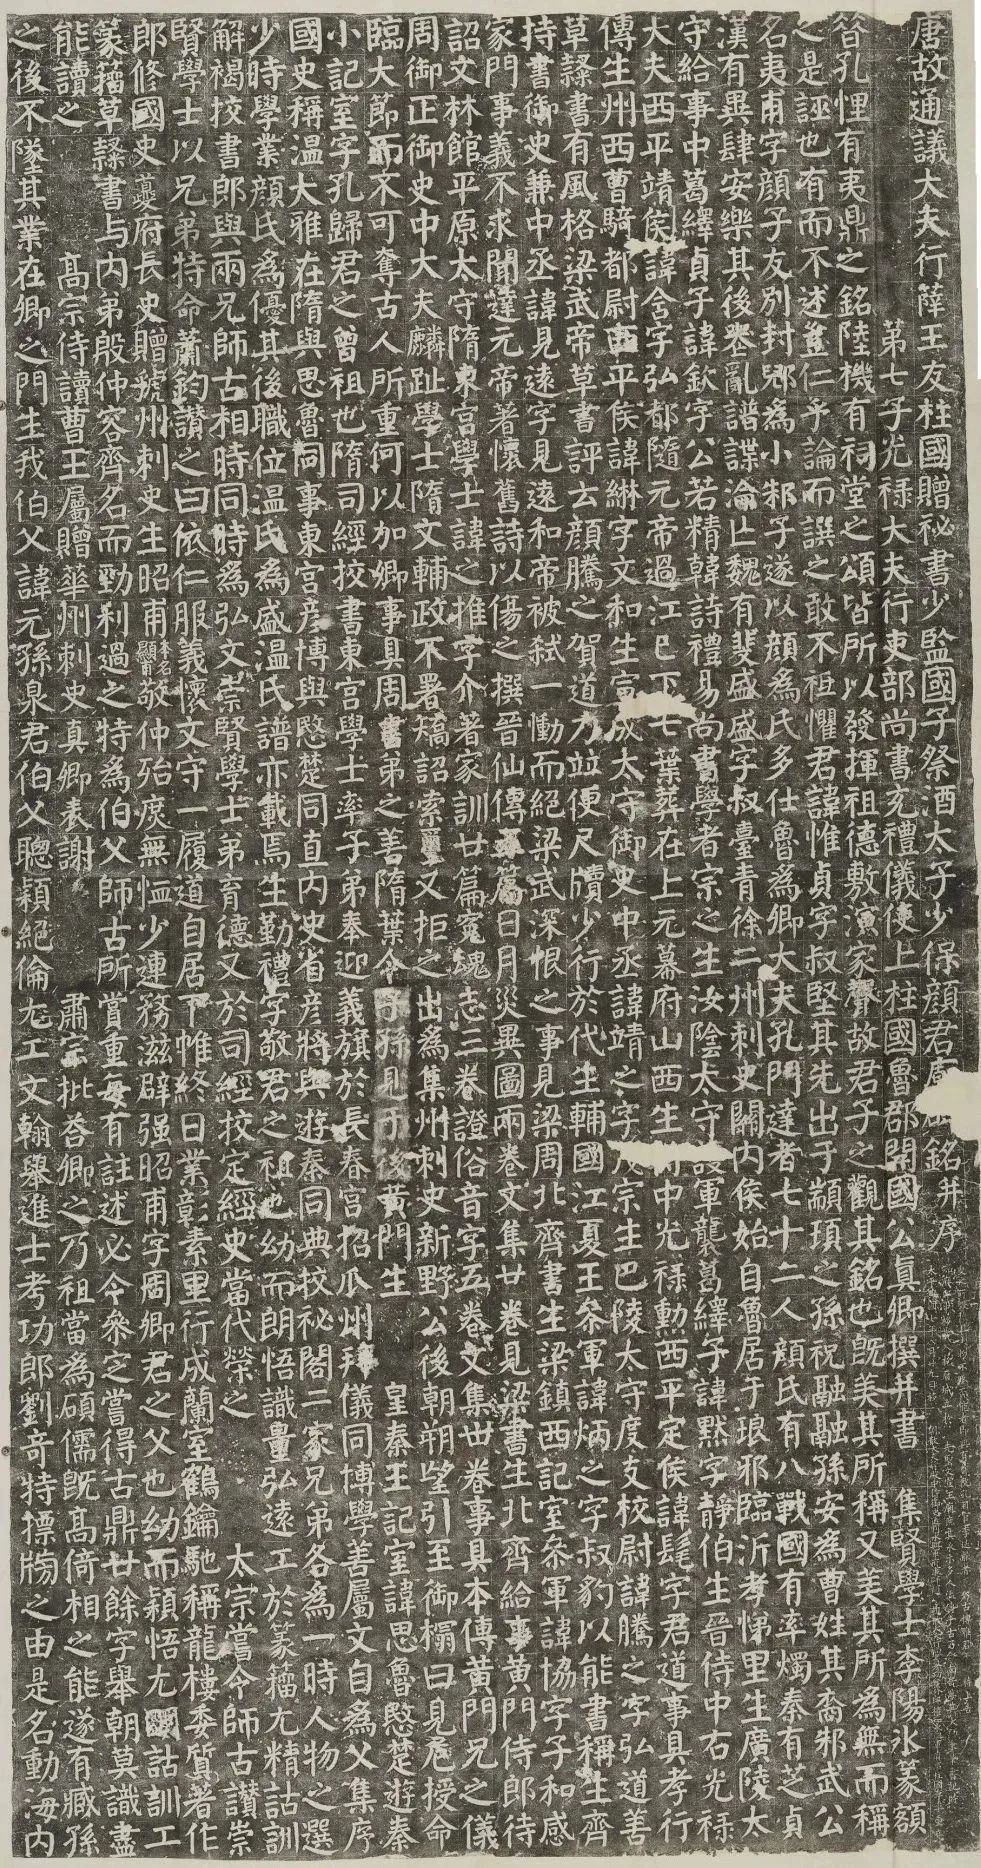 唐故通議大夫行薛王友柱國贈祕書少監國子祭酒太子少保顏君銘并序
第七子光祿大夫行吏部尚書充禮儀使上柱國魯郡開國公真卿撰并書 集賢學士李陽冰篆額
昝孔悝有夷鼎之銘陸機有祠堂之頌皆所以發揮祖德敷演家聲故君子之觀其銘也既美其所稱又美其所為無而稱
之是誣也有而不述豈仁乎論而譔之敢不祖懼君諱惟貞字叔堅其先出于顓頊之孫祝融融孫安為曹姓其裔邾武公
名夷甫字顏子友別封郳為小邾子遂以顏為氏多仕魯為卿大夫孔門達者七十二人顏氏有八戰國有率燭秦有芝貞
漢有異肆安樂其後喪亂譜諜淪亡魏有斐盛盛字叔臺青徐二州刺史關內侯始自魯居于琅邪臨沂孝悌里生廣陵太
守給事中葛繹貞子諱欽字公若精韓詩禮易尚書學者宗之生汝陰太守護軍襲葛繹子諱默字靜伯生晉侍中右光祿
大夫西平靖侯諱含字弘都隨元帝過江已下七葉葬在上元幕府山西生中光祿勳西平定侯諱髦字君道事具孝行
傳生州西曹騎都尉西平侯諱綝字文和生宣城太守御史中丞諱靖之字茂宗生巴陵太守度支校尉諱騰之字弘道善
草隸書有風格梁武帝草書評云顏騰之賀道力並便尺牘少行於代生輔國江夏王參軍諱炳之字叔豹以能書稱生齊
持書御史兼中丞諱見遠字見遠和帝被弒一慟而絕梁武深恨之事見梁周北齊書生梁鎮西記室參軍諱協字子和感
家門事義不求聞達元帝著懷舊詩以傷之撰晉仙傳五篇日月災異圖兩卷文集廿卷見梁書生北齊給事黃門侍郎待
詔文林館平原太守隋東宮學士諱之推字介著家訓廿篇冤魂志三卷證俗音字五卷文集卅卷事具本傳黃門兄之儀
周御正御史中大夫麟趾學士隋文輔政不署矯詔索璽又拒之出為集州刺史新野公後朝朔望引至御榻曰見危授命
臨大節而不可奪古人所重何以加卿事具周書弟之善隋葉令子孫見子後黃門生 皇秦王記室諱思魯愍楚遊秦
小記室字孔歸君之曾祖也隋司經挍書東宮學士率子弟奉迎義旗於長春宮招瓜州拜儀同博學善屬文自為父集序
國史稱溫大雅在隋與思魯同事東宮彥博與愍楚同直內史省彥將與遊秦同典挍祕閣二家兄弟各為一時人物之選
少時學業顏氏為優其後職位溫氏為盛溫氏譜亦載焉生勤禮字敬君之祖也幼而朗悟識量弘遠工於篆籀尤精詁訓
解褐挍書郎與兩兄師古相時同時為弘文崇賢學士弟育德又於司經挍定經史當代榮之 太宗嘗令師古讃崇
賢學士以兄弟特命蕭鈞讃之曰依仁服義懷文守一履道自居下帷終日業彰素里行成蘭室鶴鑰馳稱龍樓委質著作
郎修國史夔府長史贈虢州刺史生昭甫本名顯甫敬仲殆庶無恤少連務滋辟强昭甫字周卿君之父也幼而穎悟尤明詁訓工
篆籀草隸書与內弟殷仲容齊名而勁利過之特為伯父師古所賞重每有註述必令參定嘗得古鼎廿餘字舉朝莫識盡
能讀之 高宗侍讀曹王屬贈華州刺史真卿表謝 肅宗批荅卿之乃祖當為碩儒既高倚相之能遂有臧孫
之後不墜其業在卿之門生我伯父諱元孫泉君伯父聰穎絕倫尤工文翰舉進士考功郎劉奇特摽牓之由是名動海內